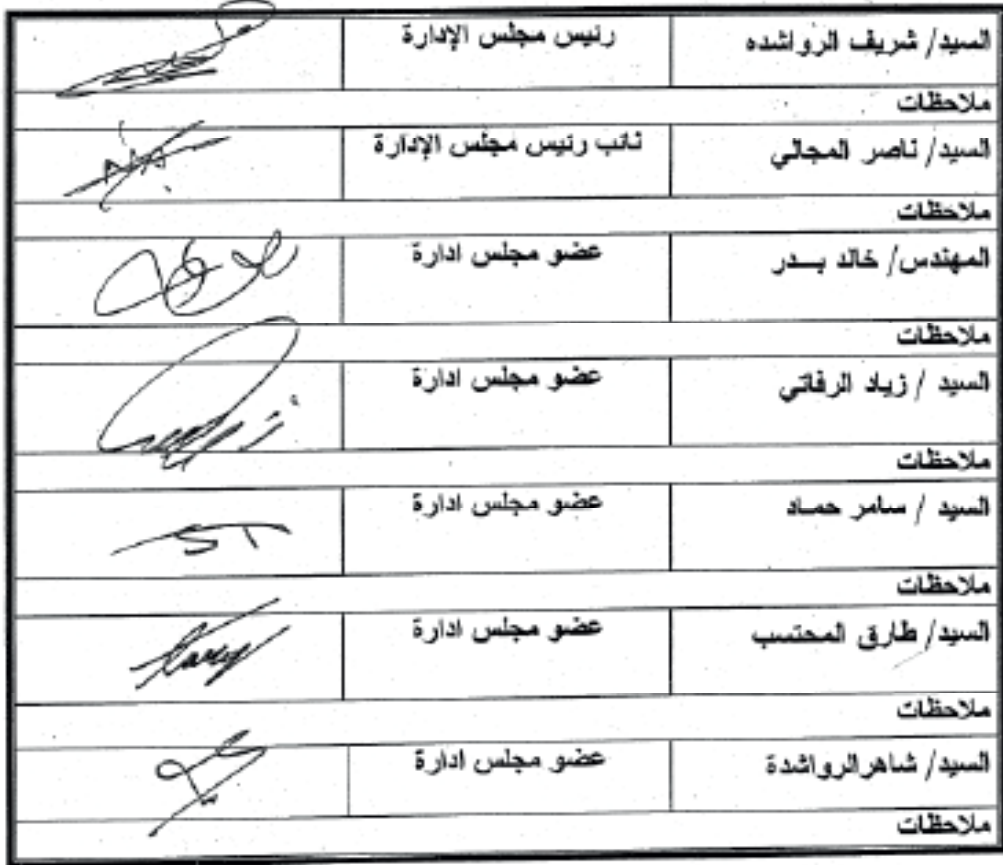 السيد/ شريف الرواشده رئيس مجلس الإدارة
ملاحظات
السيد/ ناصر المجالي نائب رئيس مجلس الإدارة
ملاحظات
المهندس/ خالد بـــدر عضو مجلس ادارة
ملاحظات
السيد / زياد الرفاتي عضو مجلس ادارة
ملاحظات
السيد / سامر حمـاد عضو مجلس ادارة
ملاحظات
السيد/ طارق المحتسب عضو مجلس ادارة
ملاحظات
السيد/ شاهرالرواشدة عضو مجلس ادارة
ملاحظات